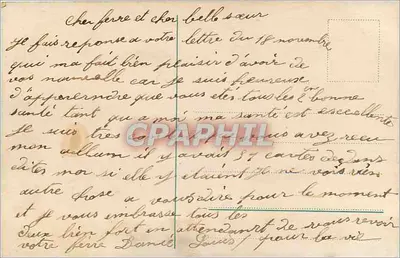 cher ferre et cher belle sœur
je fais reponse a votre lettre du 18 novembre
qui ma fait bien plaisir d'avoir de
vos nouvelle car je suis heureuse
d'apprerndre que vous etes tous les 2 en bonne
santé tant qu a moi ma santé est excellente
je suis tres vous avez recu
mon allbum il y avait 57 cartes dedans
dites moi si elle y etaient je ne vois rien
autre chose a vous dire pour le moment
et je vous embrasse tous les
deux bien fort en attendant de vous revoir
votre ferre Daniel Louis pour la vie
CPAPHIL